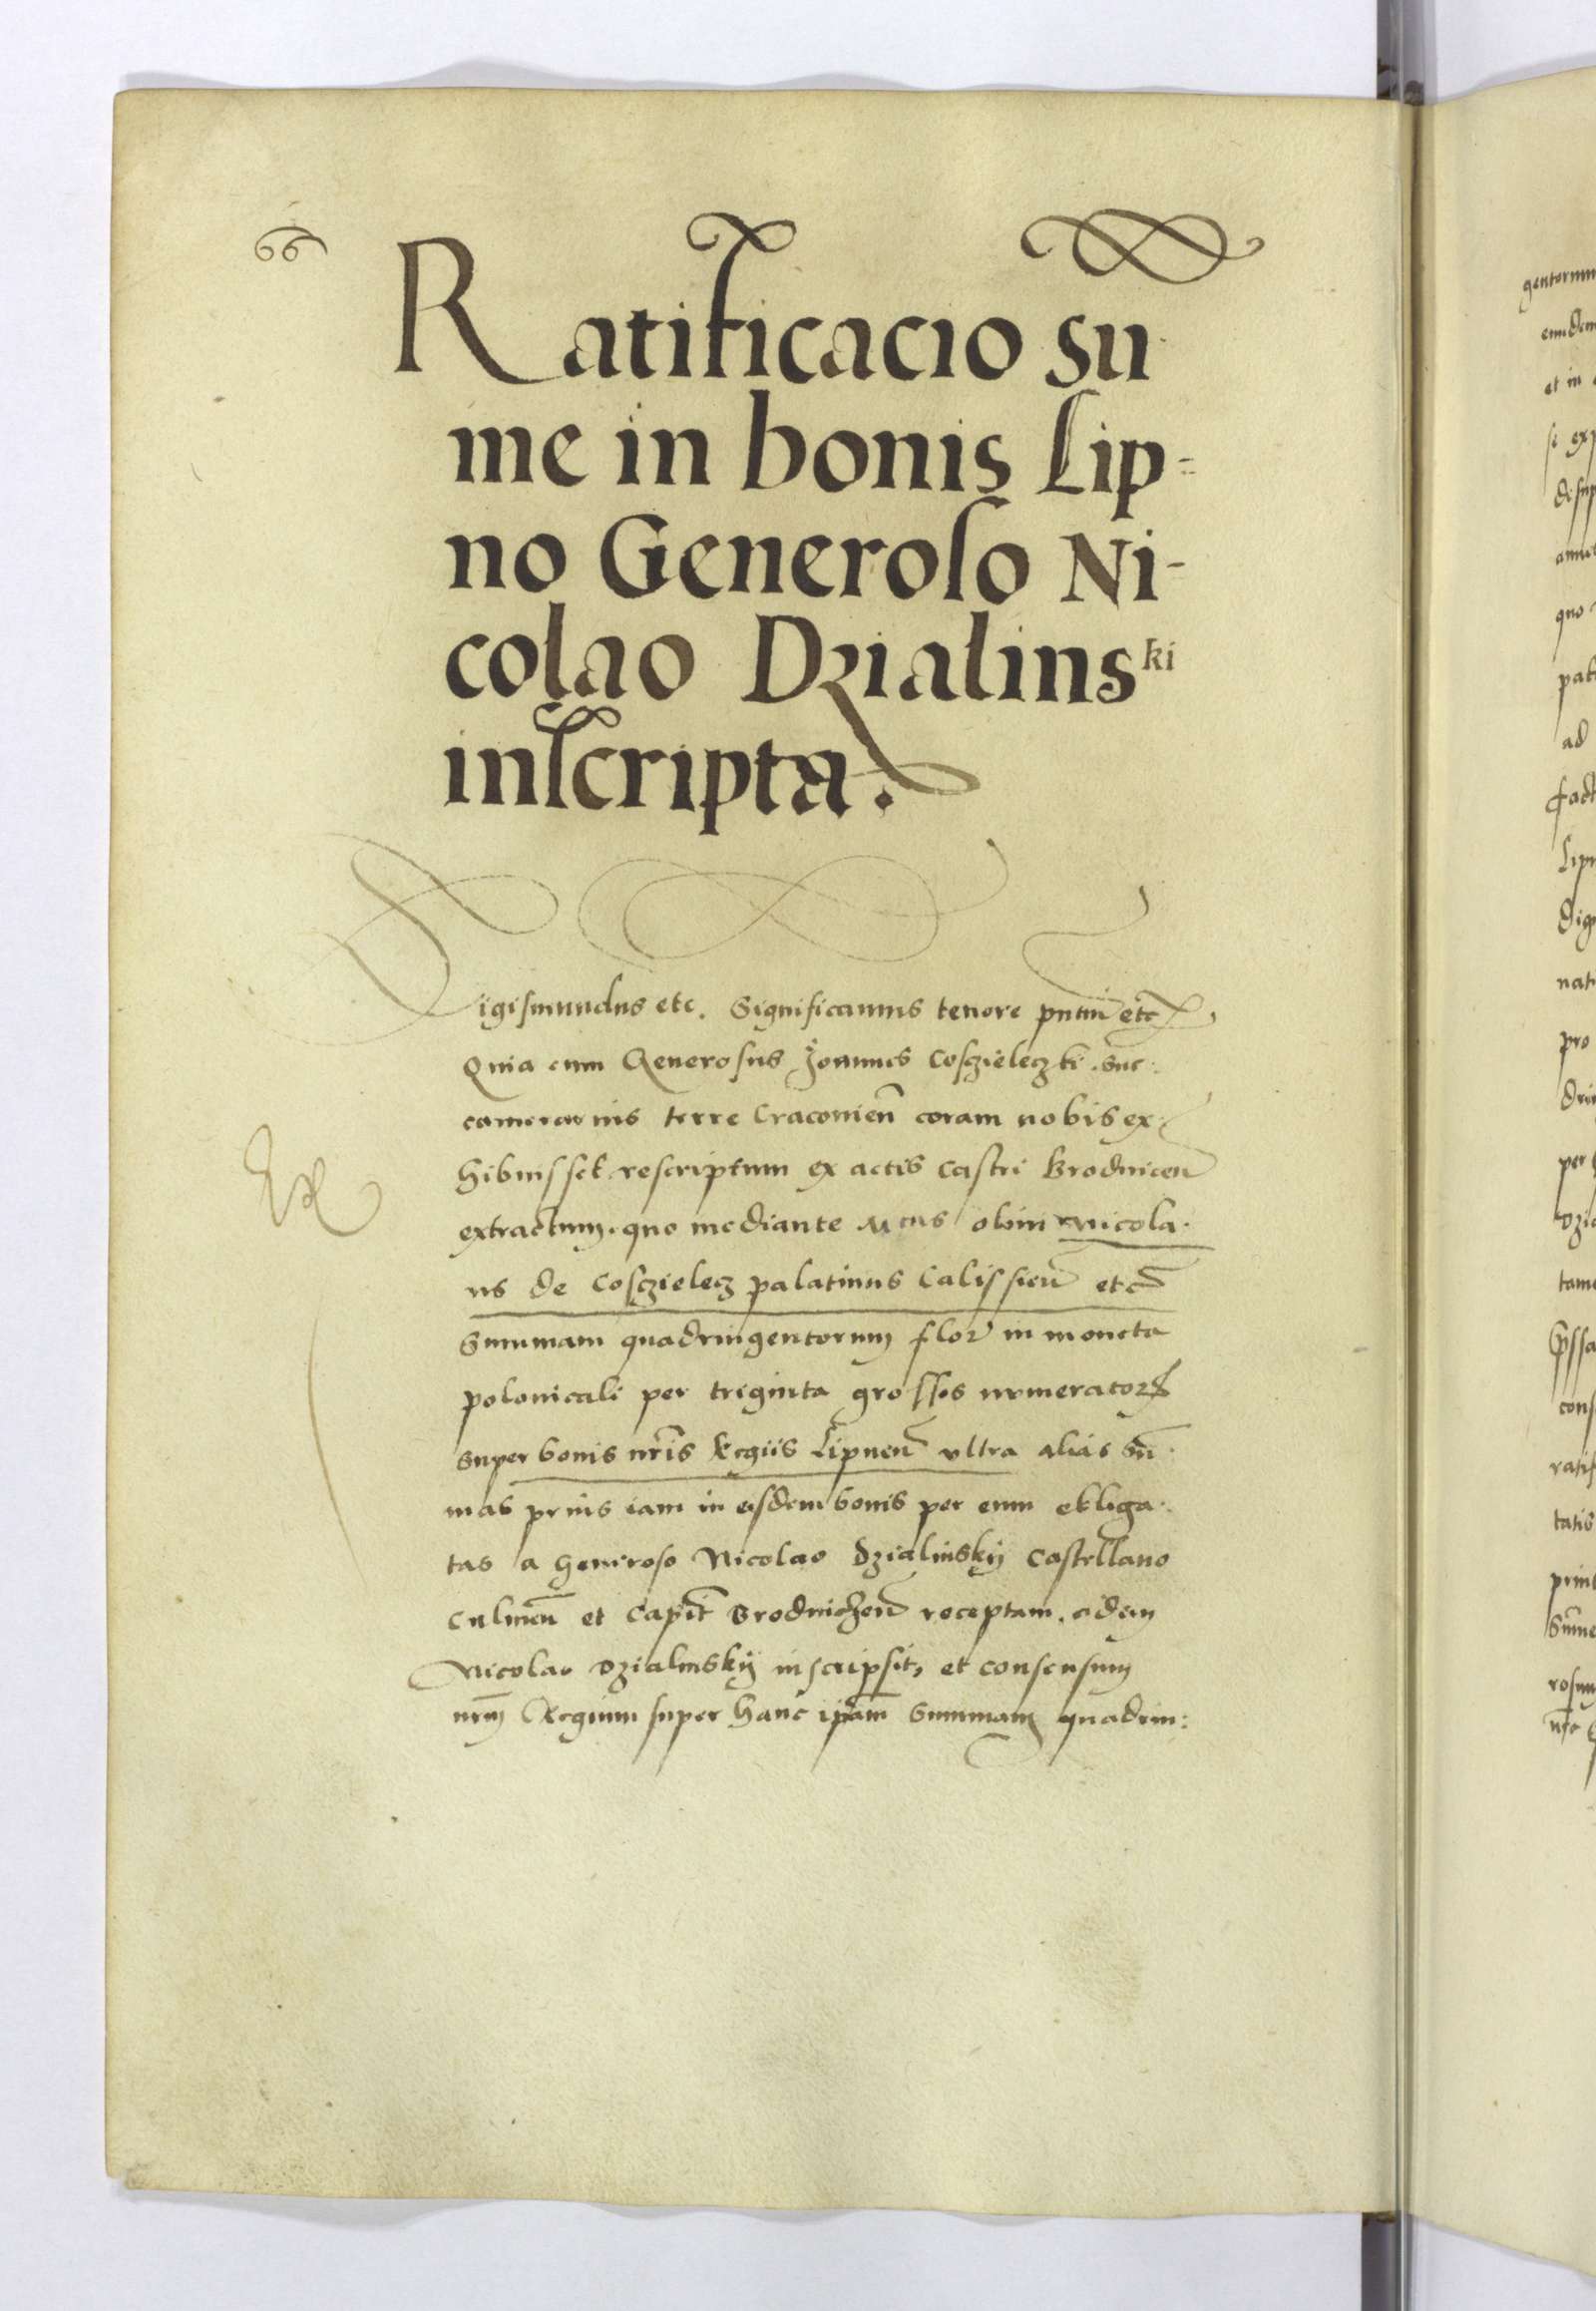 66
Ratificacio su
me in bonis Lip=
no Generoso Ni-
colao Dzialinski
inscripta.
Sigismundus etc. Significamus tenore pntiu etc.
Quia cum Generosus Joannes Cosczieleczki. suc:
camerarius terre Craconien coram nobis ex:
hibuisset rescriptum ex actis castri Brodnicen
extractum. quo mediante olim Nicola-
us de Cosczielecz palatinus Calissien etc
Summam quadringentorum flor in moneta
polonicali per triginta grossos numerator
super bonis nris Regiis Lipnen ultra alias sũ-
mas prius iam in eisdem bonis per eum obliga-
tas a Generoso Nicolao Dzialinskij Castellano
Culmen et Capit Brodniczen receptam. eidem
Nicolao Dzialinskij inscripsit, et consensum
nrm Regium super hanc ipam summam quadrin:
gentorum
et in
quo
ad
pro
per